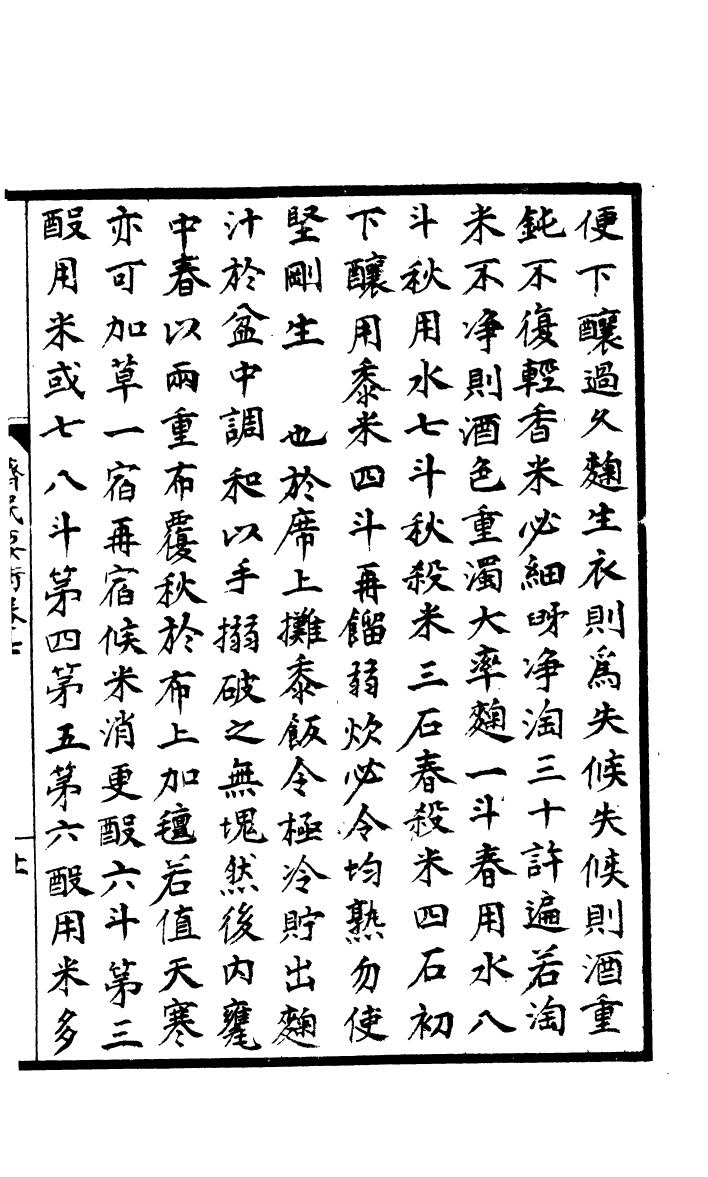 便下釀過久麴生衣則爲失候失候則酒重
鈍不復輕香米必細𥇦净淘三十許遍若淘
米不净則酒色重濁大率麴一斗春用水八
斗秋用水七斗秋殺米三石春殺米四石初
下釀用黍米四斗再餾弱炊必令均熟勿使
堅剛生　也於席上攤黍飯令極冷貯出麴
汁於盆中調和以手搦破之無塊然後内甕
中春以兩重布覆秋於布上加氊若值天寒
亦可加草一宿再宿候米消更酘六斗第三
酘用米或七八斗第四第五第六酘用米多
齊民要術卷七